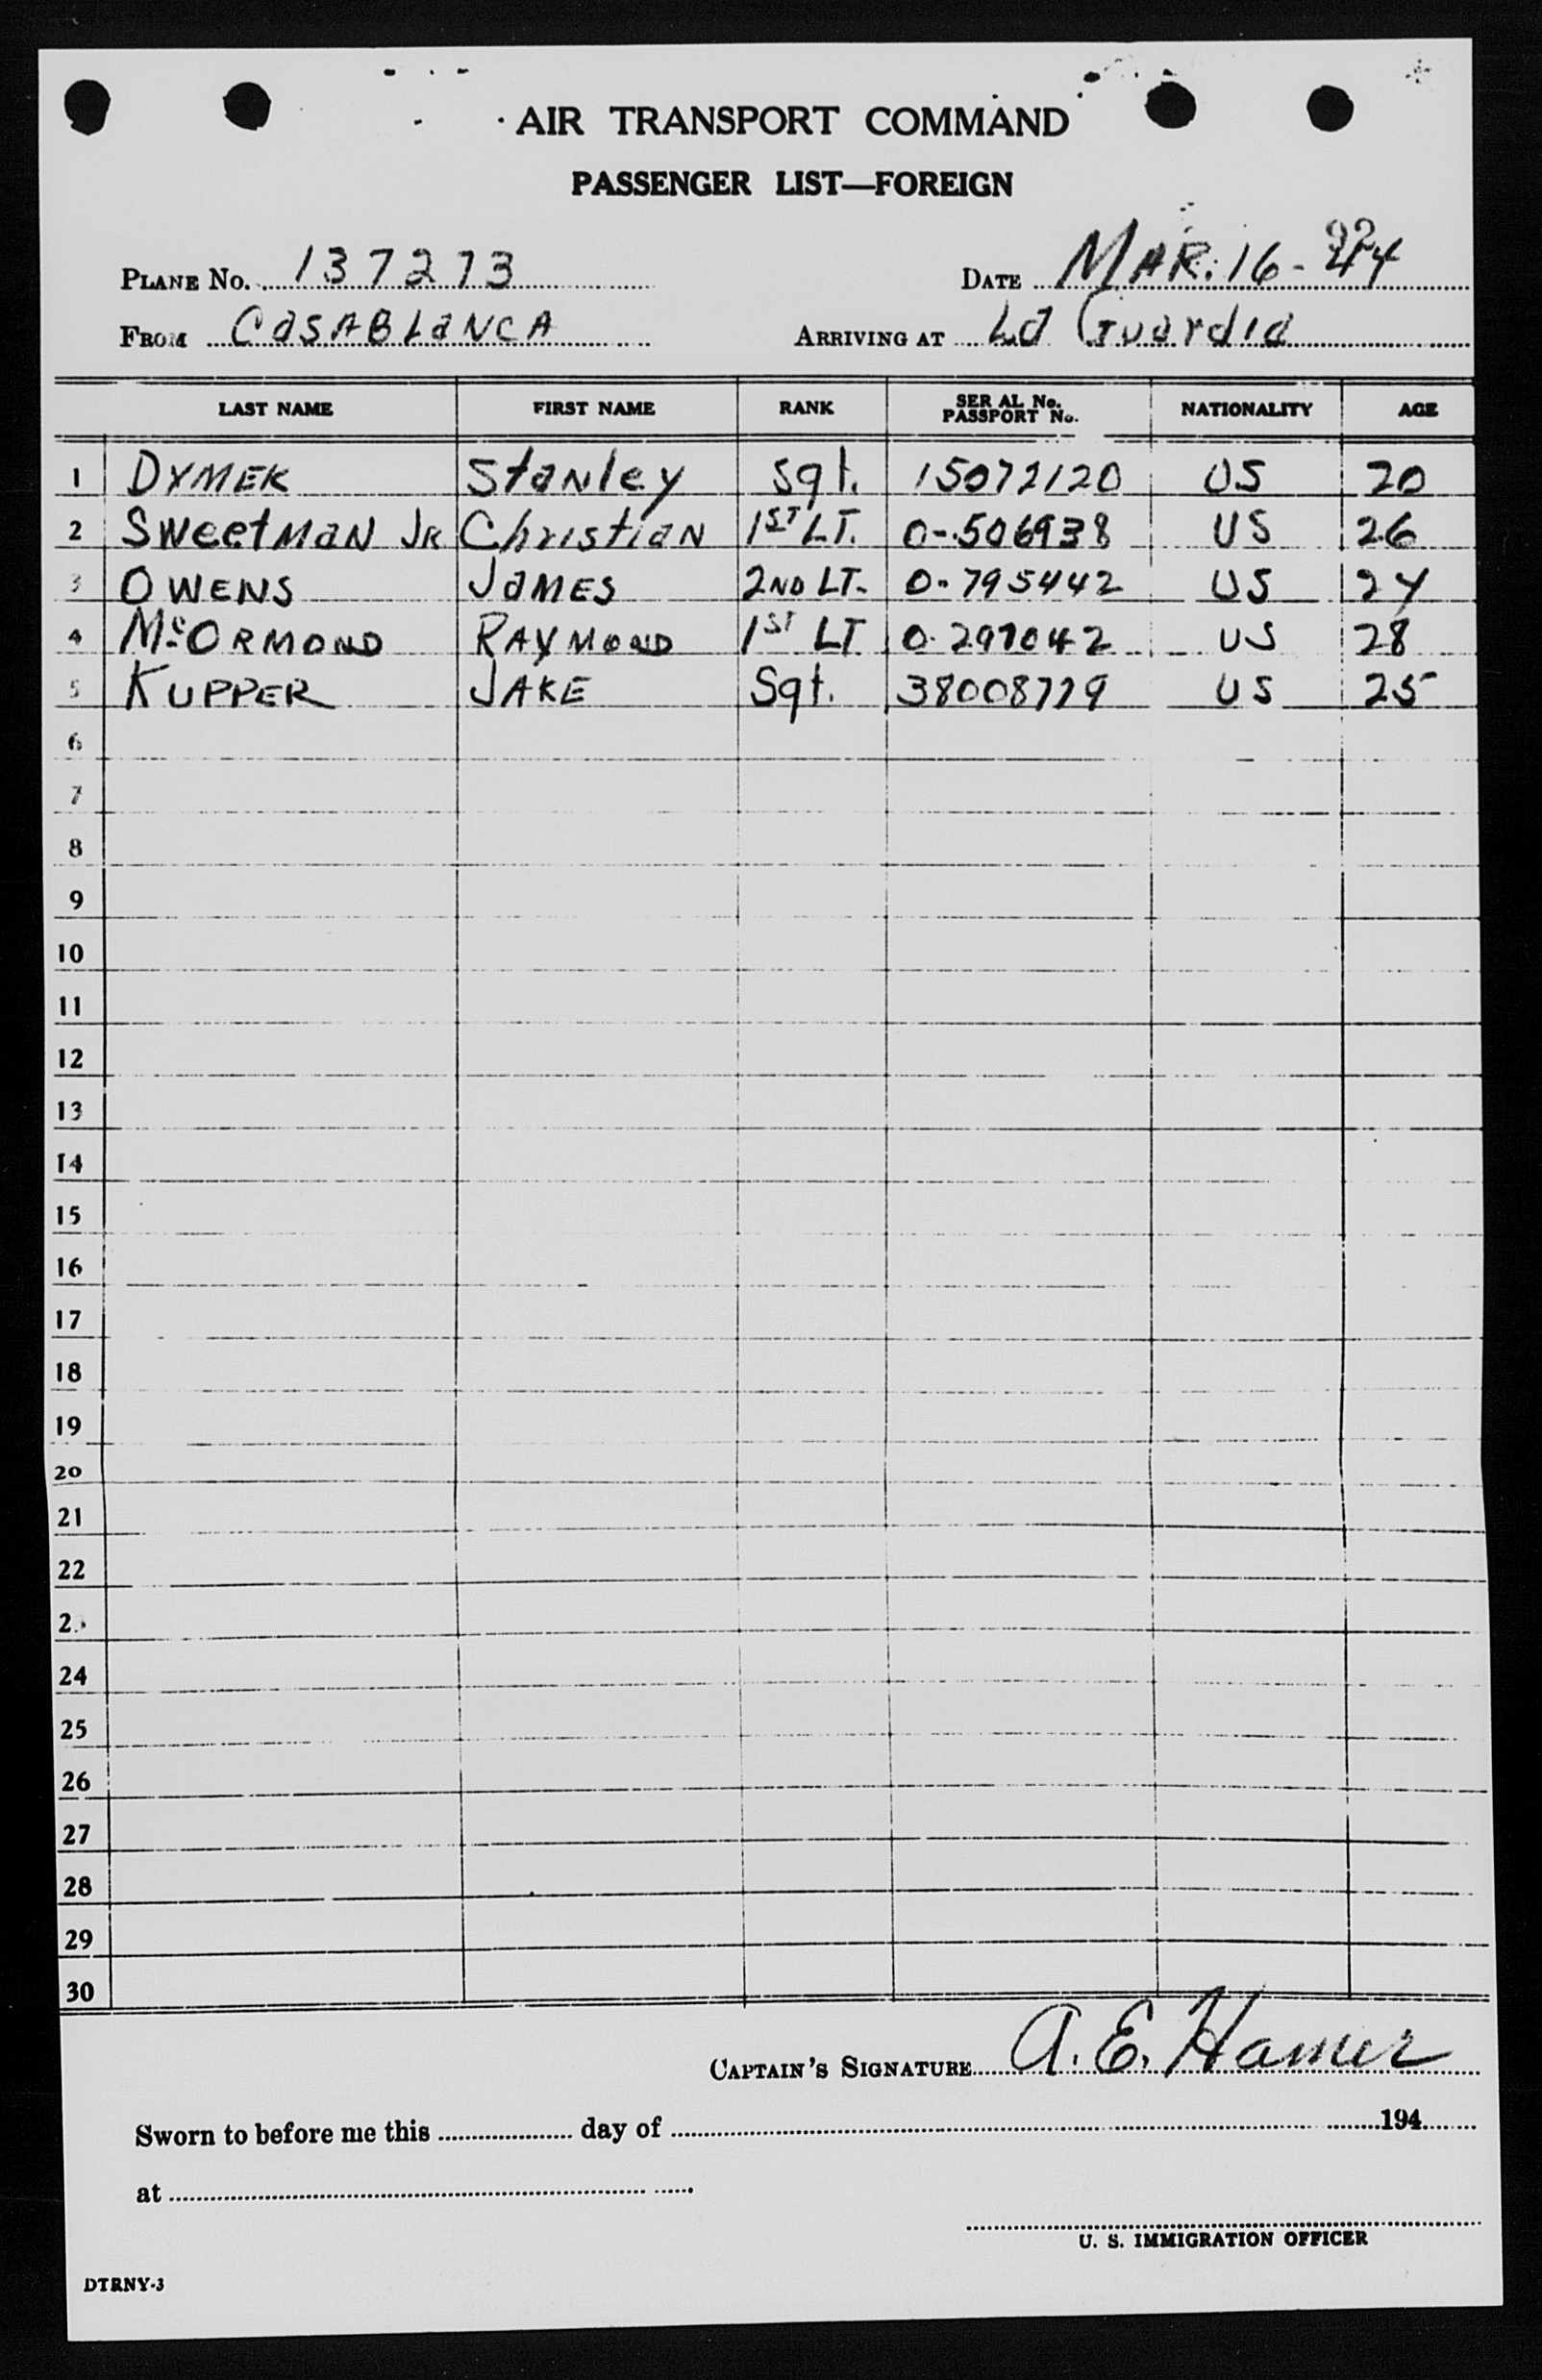 AIR TRANSPORT COMMAND
PASSENGER LIST—FOREIGN
PLANE No. 137273 DATE MAR. 16 - 44
FROM CASABLANCA ARRIVING AT La Guardia
LAST NAME FIRST NAME RANK SER AL No. PASSPORT No. NATIONALITY AGE
1 DYMEK Stanley Sgt. 15072120 US 20
2 Sweetman JR Christian 1ST LT. 0-506938 US 26
3 OWENS JAMES 2ND LT. 0-795442 US 24
4 McORMOND RAYMOND 1ST LT 0-297042 US 28
5 KUPPER JAKE Sgt. 38008779 US 25
6
7
8
9
10
11
12
13
14
15
16
17
18
19
20
21
22
2
24
25
26
27
28
29
30
CAPTAIN'S SIGNATURE A. E. Hamer
Sworn to before me this day of 194
at
U. S. IMMIGRATION OFFICER
DTRNY-3